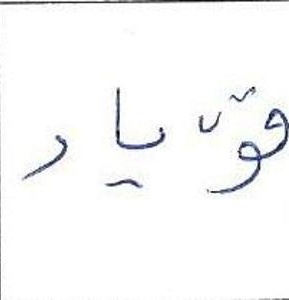 قۆیار